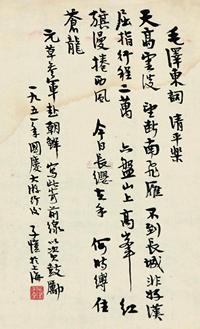 毛澤東詞 清平樂
天高雲淡 望斷南飛雁 不到長城非好漢
屈指行程二萬 六盤山上高峯 紅
旗漫捲西風 今日長纓在手 何時縛住
蒼龍
元草參軍赴朝鮮 寫此寄前線以資鼓勵
一九五一年國慶大游行 子愷於上海